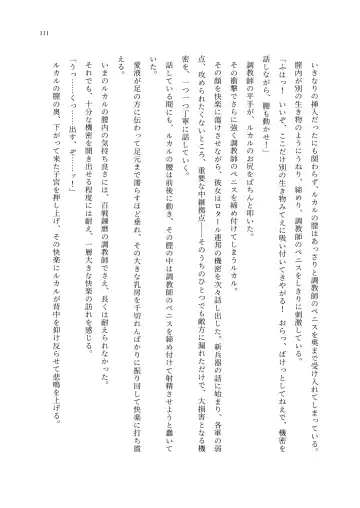 いきなりの挿入だったにも関わらず、ルカルの膣はあっさりと調教師のペニスを奥まで受け入れてしまっている。
膣内が別の生き物のようにうねり、締めり、調教師のペニスをしきりに刺激している。
「ふはっ！ いいぞ、ここだけ別の生き物みてえに吸い付いてきやがる！ おらっ、ぼけっとしてねえで、機密を
話しながら、腰も動かせ！」
調教師の平手が、ルカルのお尻をばちんと叩いた。
その衝撃でさらに強く調教師のペニスを締め付けてしまうルカル。
その顔を快楽に蕩けさせながら、彼女はロタール連邦の機密を次々話し出した。新兵器の話に始まり、各軍の弱
点、攻められたくないところ、重要な中継拠点――そのうちのひとつでも敵方に漏れただけで、大損害となる機
密を、一つ一つ丁寧に話していく。
話している間にも、ルカルの腰は前後に動き、その膣の中は調教師のペニスを締め付けて射精させようと蠢いて
いた。
愛液が足の方に伝わって足元まで濡らすほど垂れ、その大きな乳房を千切れんばかりに振り回して快楽に打ち震
える。
いまのルカルの膣内の気持ち良さには、百戦錬磨の調教師でさえ、長くは耐えられなかった。
それでも、十分な機密を聞き出せる程度には耐え、一層大きな快楽の訪れを感じる。
「うっ……くっ……出す、ぞ……ッ！」
ルカルの膣の奥、下がって来た子宮を押し上げ、その快楽にルカルが背中を仰け反らせて悲鳴を上げる。
111